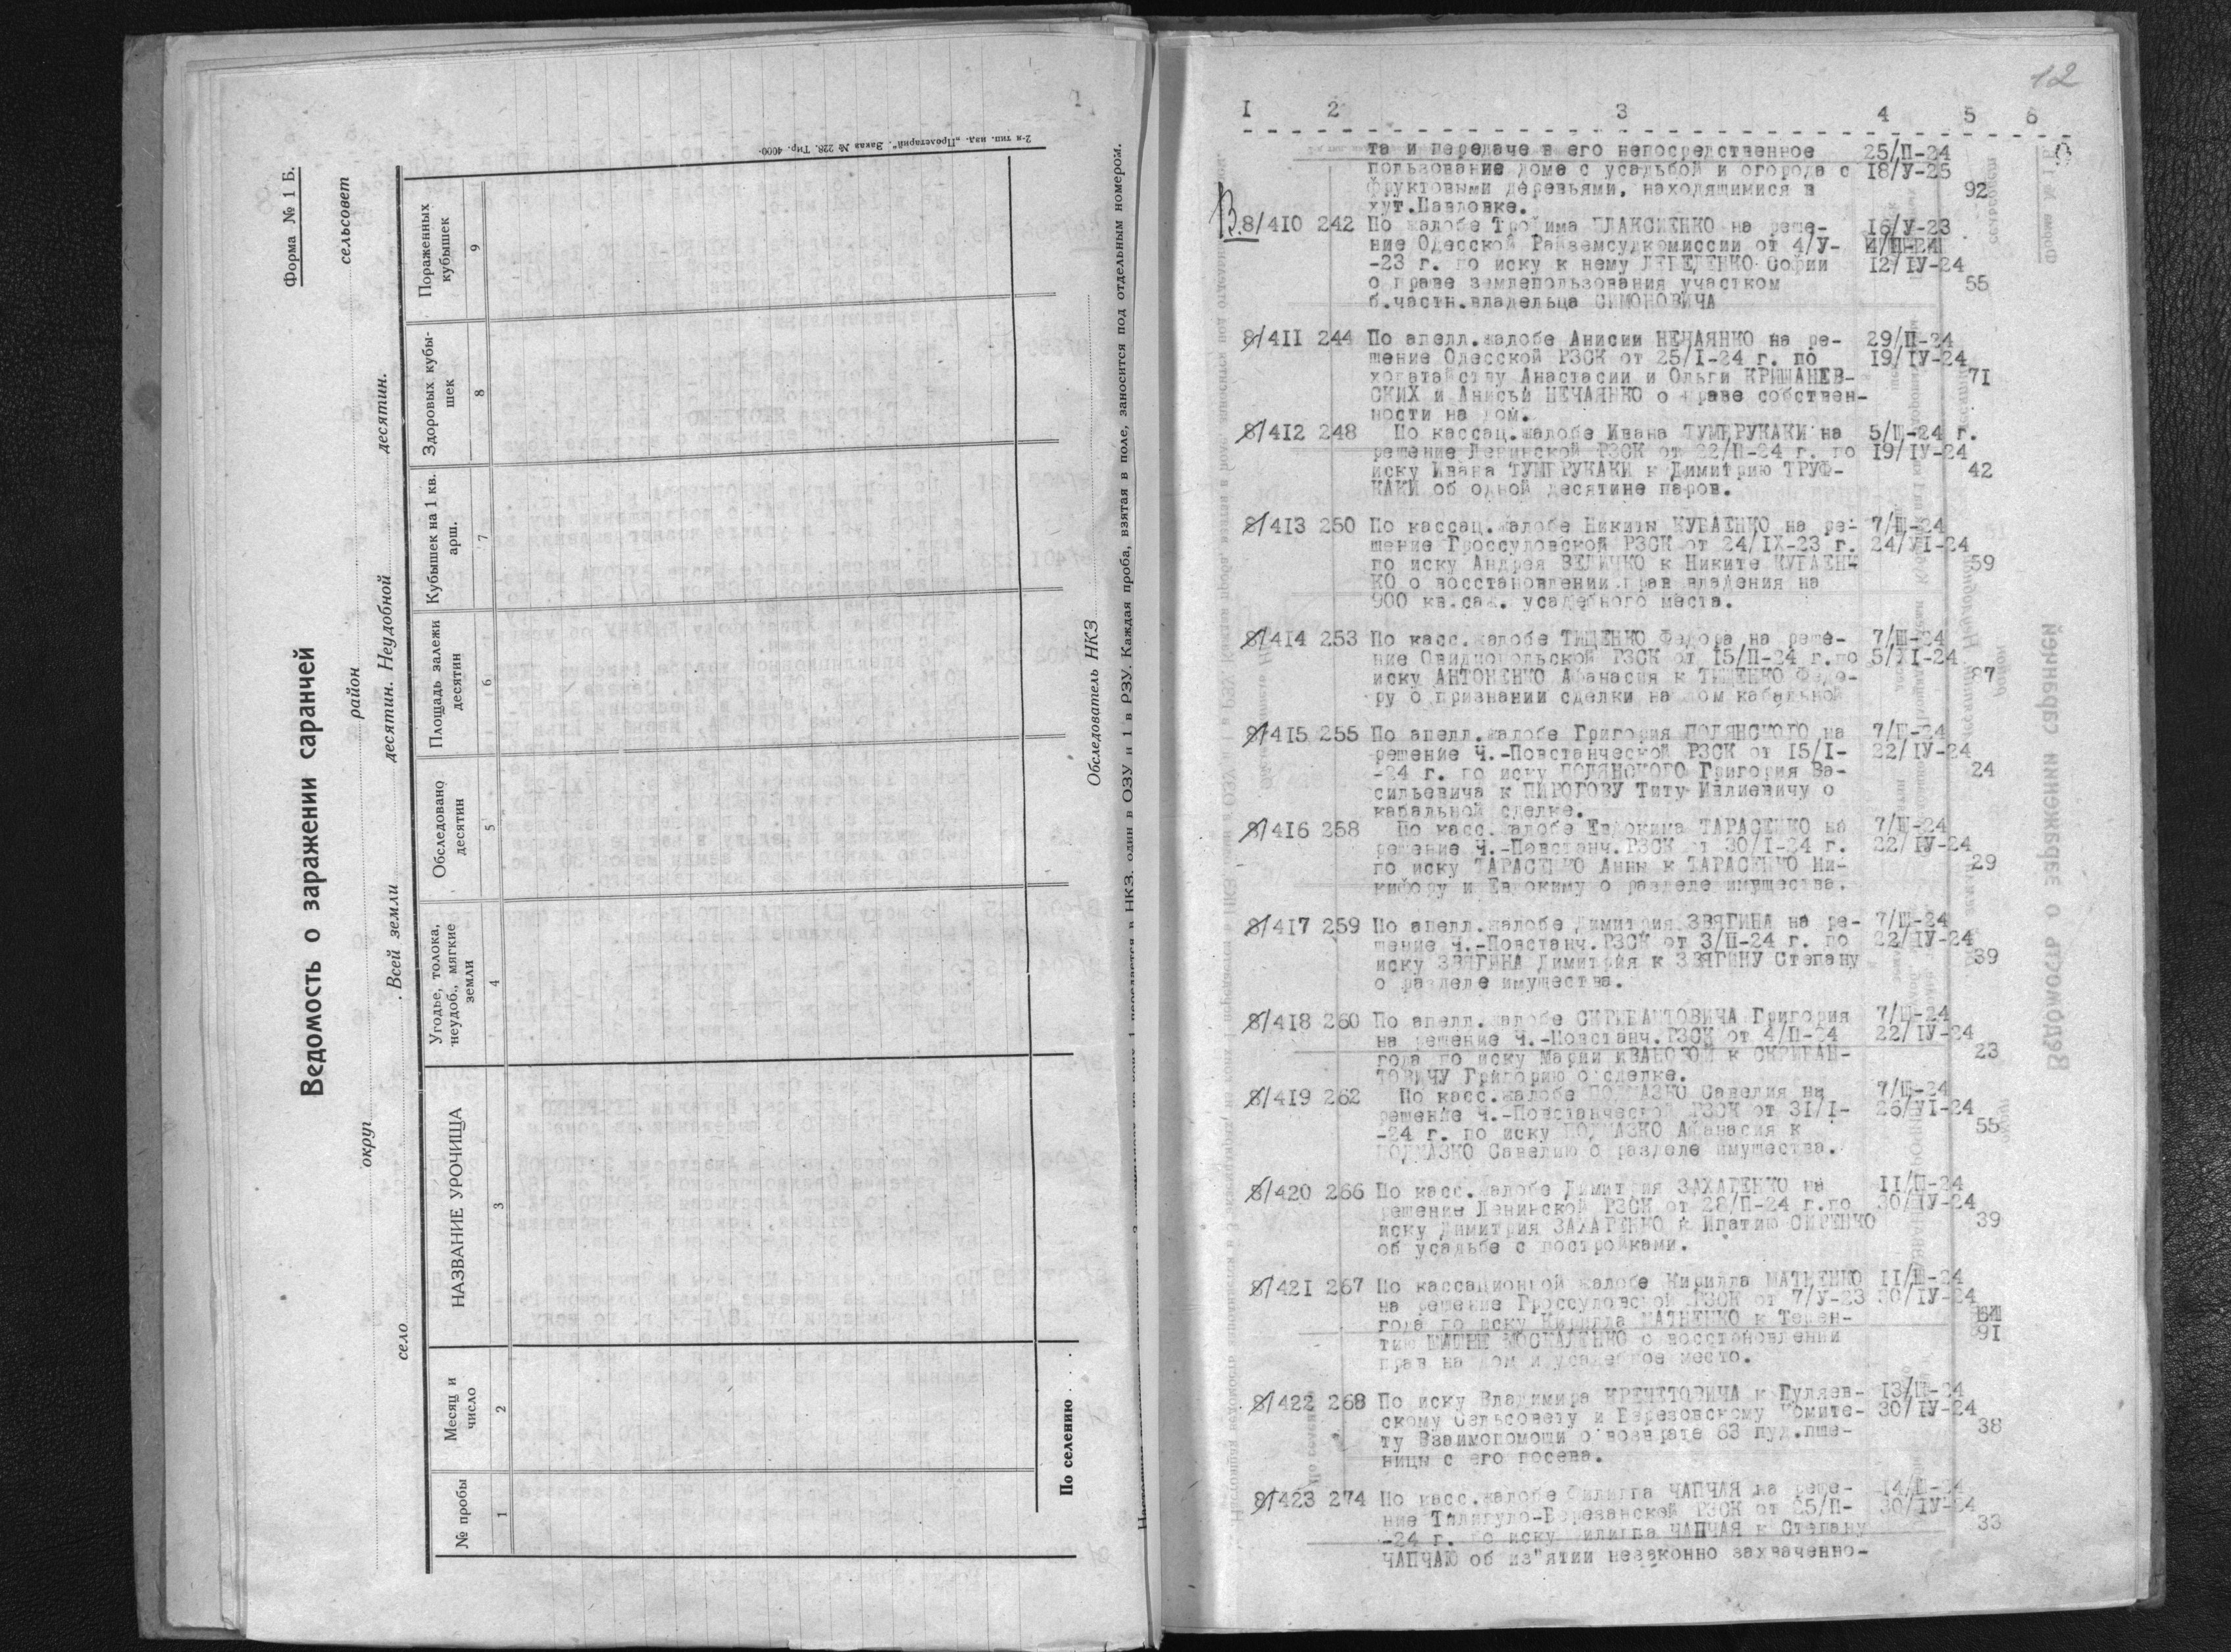 Форма № 1 Б.
Ведомость о заражении саранчей
округ
район
сельсовет
село
Всей земли
десятин. Неудобной
десятин.
№ пробы
Месяц и число
НАЗВАНИЕ УРОЧИЩА
Угодье, толока, неудоб., мягкие земли
Обследовано десятин
Площадь залежи десятин
Кубышек на 1 кв. арш.
Здоровых кубышек
Пораженных кубышек
1 2 3 4 5 6 7 8 9
По селению . . .
Обследователь НКЗ
один в ОЗУ и 1 в РЗУ. Каждая проба, взятая в поле, заносится под отдельным номером.
2-я тип. изд. „Пролетарий“. Заказ № 228. Тир. 4000.
12
I 2 3 4 5 6
та и передаче в его непосредственное 25/П-24
пользование доме с усадьбой и огорода с 18/У-25
фруктовыми деревьями, находящимися в 92
хут.Павловке.
8/410 242 По жалобе Трофима ПЛАКСИЕНКО на реше- 16/У-23
ние Одесской Райземсудкомиссии от 4/У-
-23 г. по иску к нему ЛЕБЕДЕНКО Софии 12/IУ-24
о праве землепользования участком 55
б.частн.владельца СИМОНОВИЧА
8/411 244 По апелл.жалобе Анисии НЕЧАЯНКО на ре- 29/П-24
шение Одесской РЗСК от 25/I-24 г. по 19/IУ-24
ходатайству Анастасии и Ольги КРИШАНЕВ- 71
СКИХ и Анисьи НЕЧАЯНКО о праве собствен-
ности на дом.
8/412 248 По кассац.жалобе Ивана ТУМБРУКАКИ на 5/Ш-24 г.
решение Ленинской РЗСК от 22/П-24 г. по 19/IУ-24
иску Ивана ТУМБРУКАКИ к Димитрию ТРУФ- 42
КАКИ об одной десятине паров.
8/413 250 По кассац.жалобе Никиты КУБАЕНКО на ре- 7/Ш-24
шение Гроссуловской РЗСК от 24/IX-23 г. 24/УI-24
по иску Андрея ВЕЛИЧКО к Никите КУБАЕН- 59
КО о восстановлении прав владения на
900 кв.саж. усадебного места.
8/414 253 По касс.жалобе ТИЩЕНКО Федора на реше- 7/Ш-24
ние Овидиопольской РЗСК от 15/П-24 г.по 5/XI-24
иску АНТОНЕНКО Афанасия к ТИЩЕНКО Федо- 87
ру о признании сделки на дом кабальной
8/415 255 По апелл.жалобе Григория ПОЛЯНСКОГО на 7/Ш-24
решение Ч.-Повстанческой РЗСК от 15/I- 22/IУ-24
-24 г. по иску ПОЛЯНСКОГО Григория Ва- 24
сильевича к ПИРОГОВУ Титу Ивлиевичу о
кабальной сделке.
8/416 258 По касс.жалобе Евдокима ТАРАСЕНКО на 7/Ш-24
решение Ч.-Повстанч.РЗСК от 30/I-24 г. 22/IУ-24
по иску ТАРАСЕНКО Анны к ТАРАСЕНКО Ни- 29
кифору и Евдокиму о разделе имущества.
8/417 259 По апелл.жалобе Димитрия ЗВЯГИНА на ре- 7/Ш-24
шение Ч.-Повстанч.РЗСК от 3/П-24 г. по 22/IУ-24
иску ЗВЯГИНА Димитрия к ЗВЯГИНУ Степану 39
о разделе имущества.
8/418 260 По апелл.жалобе Григория 7/Ш-24
на решение Ч.-Повстанч.РЗСК от 4/П-24 22/IУ-24
года по иску Марии ИВАНОВОЙ к СКРИПАН- 23
ТОВИЧУ Григорию о сделке.
8/419 262 По касс.жалобе ПОДМАЗКО Савелия на 7/Ш-24
решение Ч.-Повстанческой РЗСК от 31/I- 26/УI-24
-24 г. по иску ПОДМАЗКО Афанасия к 55
ПОДМАЗКО Савелию о разделе имущества.
8/420 266 По касс.жалобе Димитрия ЗАХАРЕНКО на 11/Ш-24
решение Ленинской РЗСК от 28/П-24 г.по 30/IУ-24
иску Димитрия ЗАХАРЕНКО к Ипатию СИРЕНКО 39
об усадьбе с постройками.
8/421 267 По кассационной жалобе Кирилла МАТВЕЕНКО 11/Ш-24
на решение Гроссуловской РЗСК от 7/У-23 30/IУ-24
года по иску Кирилла МАТВЕЕНКО к Терен-
тию МОСКАЛЕНКО о восстановлении 91
прав на дом и усадебное место.
8/422 268 По иску Владимира КРЕЧЕТОВИЧА к Гуляев- 13/Ш-24
скому Сельсовету и Березовскому Комите- 30/IУ-24
ту Взаимопомощи о возврате 63 пуд.пше- 38
ницы с его посева.
8/423 274 По касс.жалобе Филиппа ЧАПЧАЯ на реше- 14/Ш-24
ние Тилигуло-Березанской РЗСК от 25/П- 30/IУ-24
-24 г. по иску Филиппа ЧАПЧАЯ к Степану 33
ЧАПЧАЮ об из"ятии незаконно захваченно-